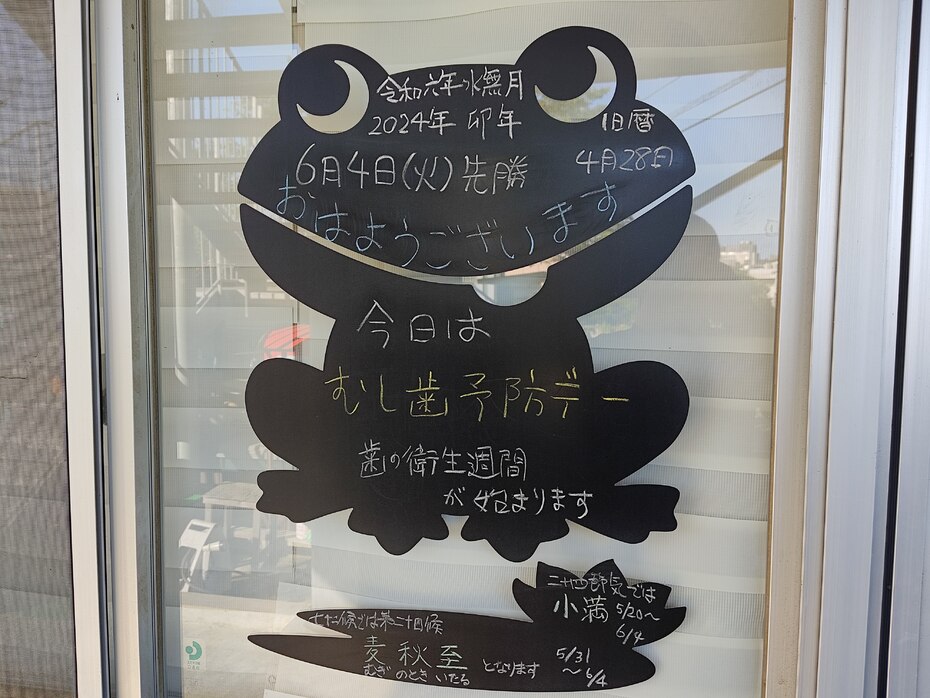 令和六年水無月
2024年 卯年
旧暦
4月28日
6月4日(火)先勝
おはようございます
今日は
むし歯予防デー
歯の衛生週間
が始まります
二十四節気では
小満 5/20〜
6/4
七十二候では第二十四候
麦秋至 となります
むぎのときいたる
5/31
〜6/4